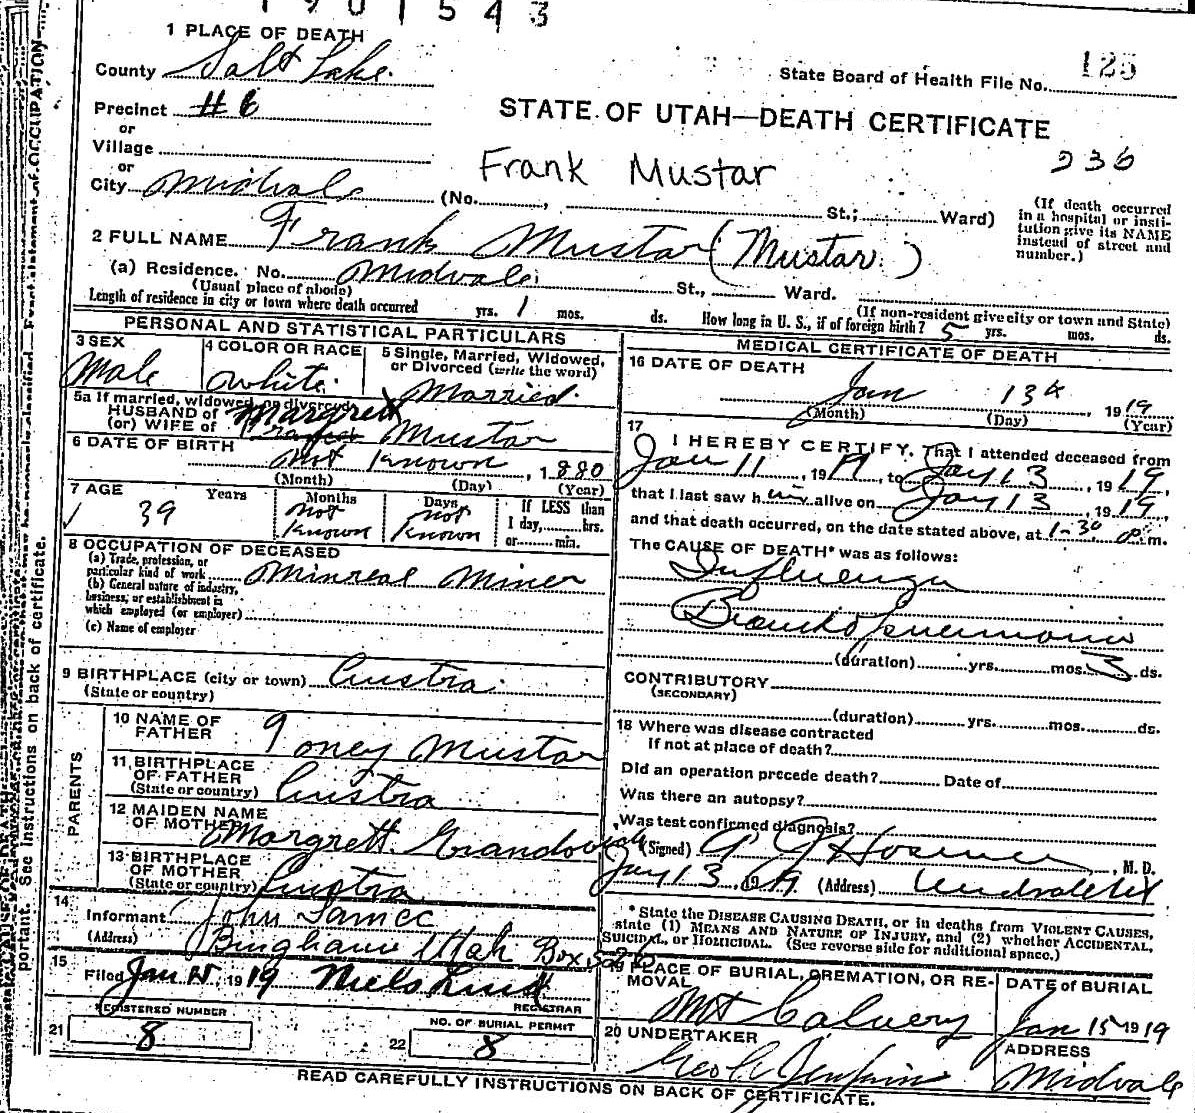 1901543
1 PLACE OF DEATH
County Salt Lake.
State Board of Health File No. 125
Precinct #6
STATE OF UTAH—DEATH CERTIFICATE
or
Village
236
or
Frank Mustar
City Midvale (No. , St.; Ward)
(If death occurred in a hospital or institution give its NAME instead of street and number.)
2 FULL NAME Frank Mustar (Mustar.)
(a) Residence. No. Midvale. St., Ward.
(Usual place of abode)
(If non-resident give city or town and State)
Length of residence in city or town where death occurred yrs. 1 mos. ds. How long in U. S., if of foreign birth? 5 yrs. mos. ds.
PERSONAL AND STATISTICAL PARTICULARS
3 SEX
Male
4 COLOR OR RACE
White.
5 Single, Married, Widowed,
or Divorced (write the word)
Married.
5a If married, widowed, or divorced
HUSBAND of Margrett
(or) WIFE of Mustar
6 DATE OF BIRTH
Not Known, 1880
(Month) (Day) (Year)
7 AGE
Years Months Days
39 not Known not Known
If LESS than
1 day,......hrs.
or......min.
8 OCCUPATION OF DECEASED
(a) Trade, profession, or
particular kind of work Minreal Miner
(b) General nature of industry,
business, or establishment in
which employed (or employer)
(c) Name of employer
9 BIRTHPLACE (city or town) Austra.
(State or country)
PARENTS
10 NAME OF
FATHER Toney Mustar
11 BIRTHPLACE
OF FATHER
(State or country) Austra
12 MAIDEN NAME
OF MOTHER Margrett
13 BIRTHPLACE
OF MOTHER
(State or country) Austra
14
Informant John Samec
(Address) Bingham Utah Box
15
Filed Jan 15, 1919 Niels Lind
REGISTRAR
REGISTERED NUMBER
21 8
NO. OF BURIAL PERMIT
22 8
MEDICAL CERTIFICATE OF DEATH
16 DATE OF DEATH
Jan 13th, 1919
(Month) (Day) (Year)
17
I HEREBY CERTIFY, That I attended deceased from
Jan 11, 1919, to Jan 13, 1919,
that I last saw him alive on Jan 13, 1919,
and that death occurred, on the date stated above, at 1-30 p.m.
The CAUSE OF DEATH* was as follows:
Influenza
Broncho Pneumonia
(duration) yrs. mos. 3 ds.
CONTRIBUTORY
(SECONDARY)
(duration) yrs. mos. ds.
18 Where was disease contracted
if not at place of death?
Did an operation precede death? Date of
Was there an autopsy?
Was test confirmed diagnosis?
(Signed) , M. D.
Jan 13, 1919 (Address) Midvale Ut
* State the DISEASE CAUSING DEATH, or in deaths from VIOLENT CAUSES,
state (1) MEANS AND NATURE OF INJURY, and (2) whether ACCIDENTAL,
SUICIDAL, or HOMICIDAL. (See reverse side for additional space.)
19 PLACE OF BURIAL, CREMATION, OR RE-
MOVAL
Mt Calvery
DATE of BURIAL
Jan 15 1919
20 UNDERTAKER
Geo Jenkins
ADDRESS
Midvale
READ CAREFULLY INSTRUCTIONS ON BACK OF CERTIFICATE.
important. See instructions on back of certificate.